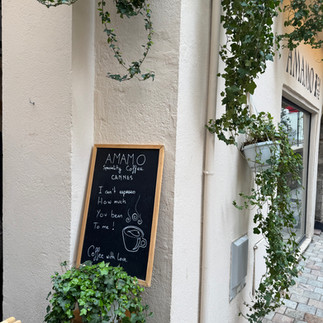 AMAMO
Speciality Coffee
CANNES
I can't espresso
How much
You bean
To me!
Coffee with Love
AMAMO